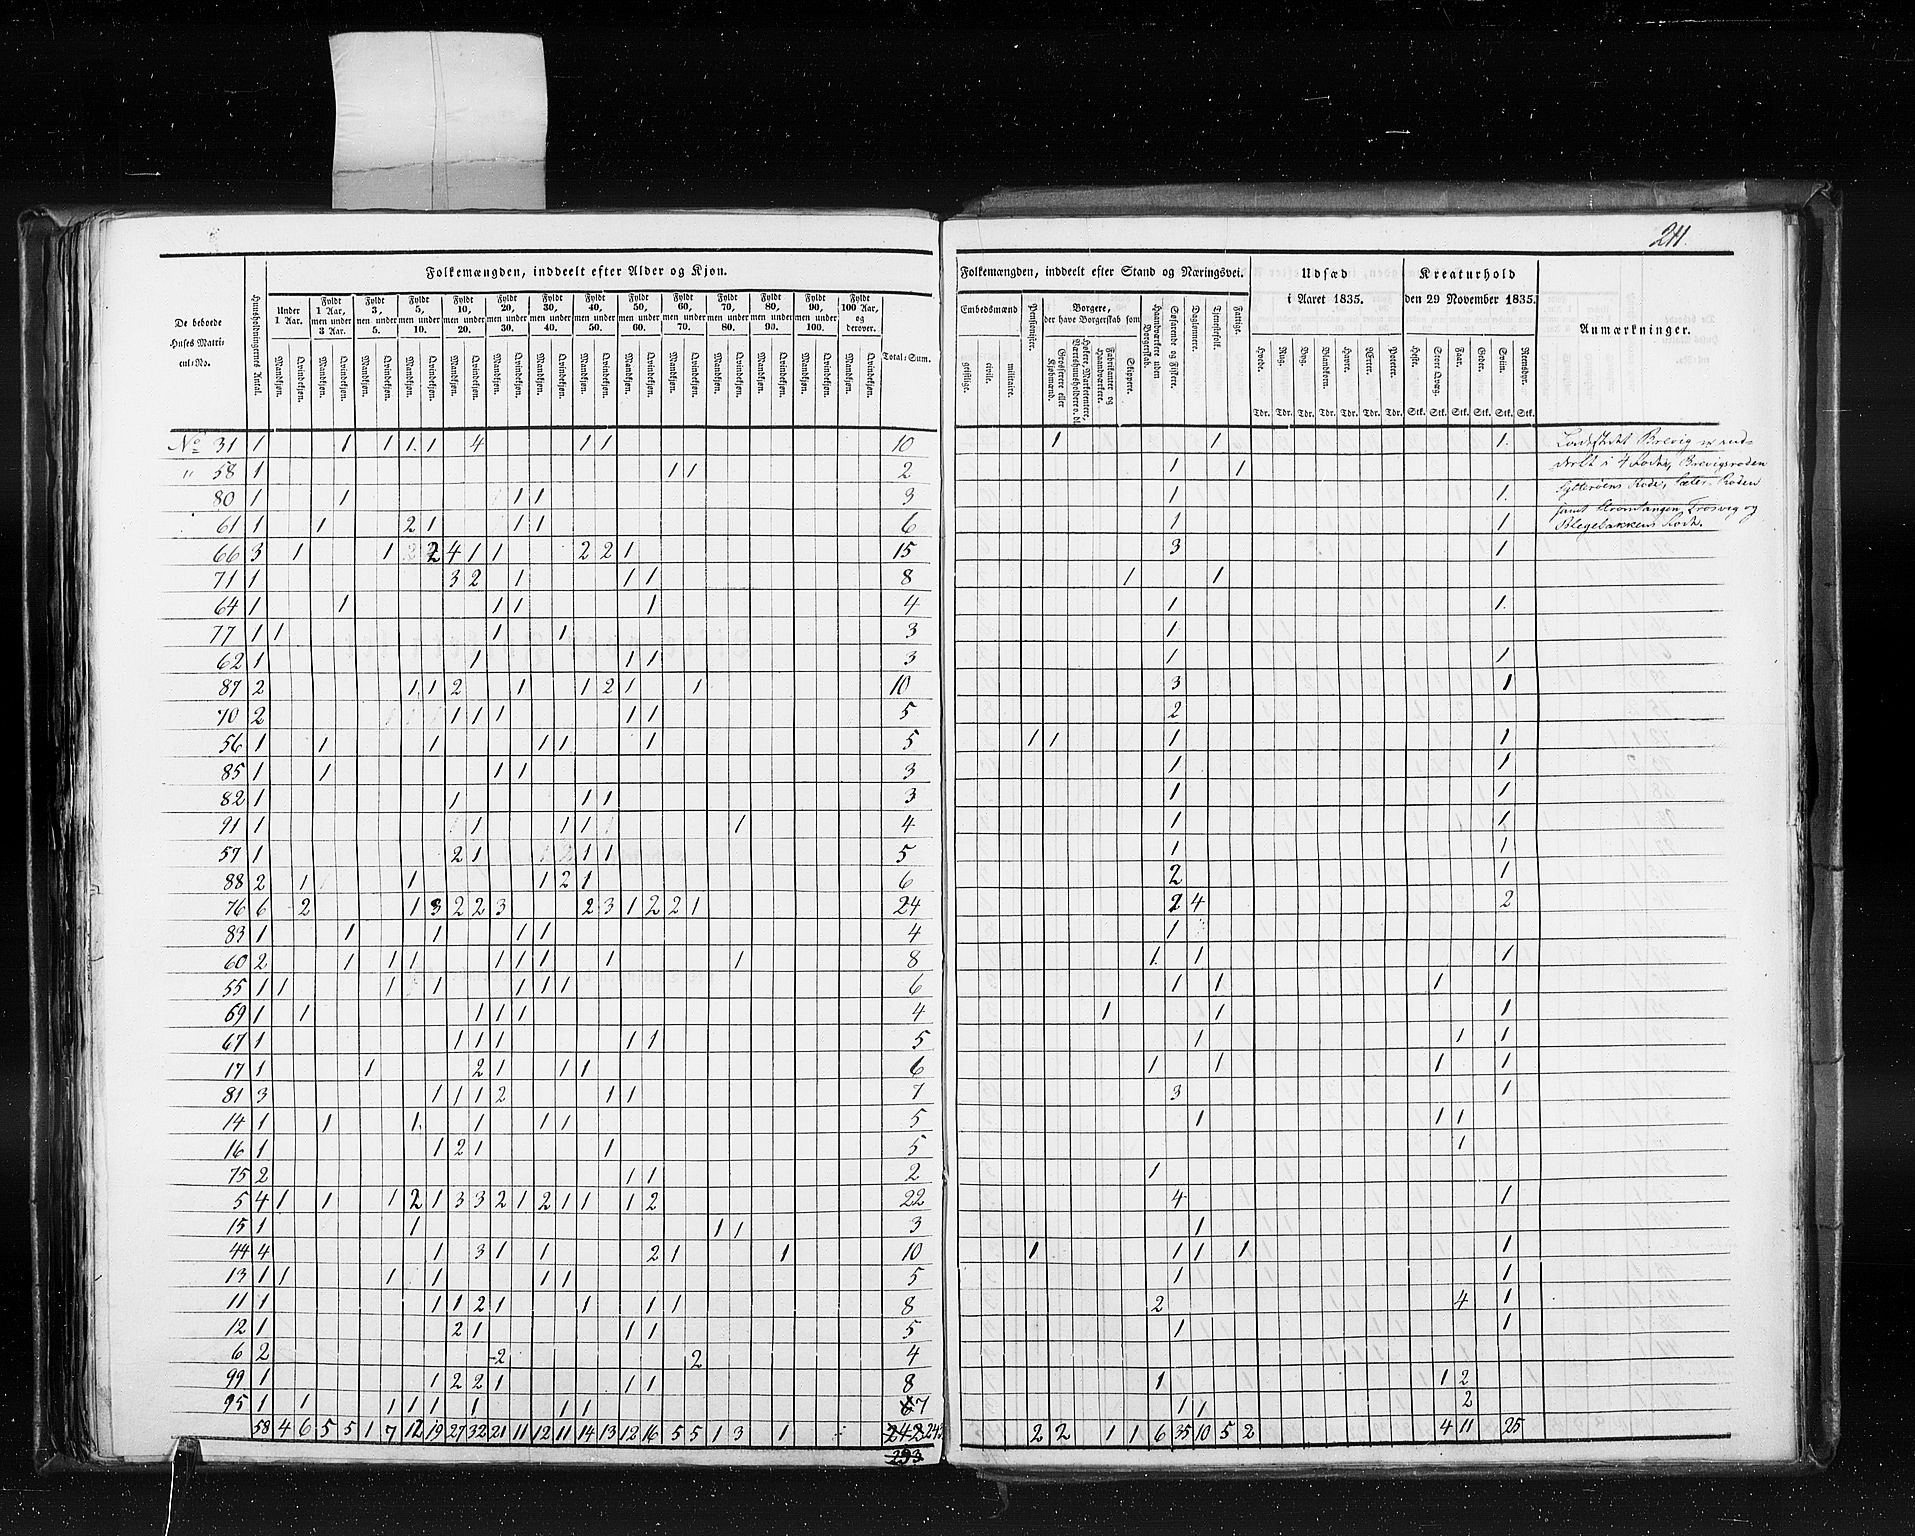 211.
Folkemængden, inddeelt efter Alder og Kjøn.
De beboede Huses Matricul-No.
Huusholdningernes Antal.
Under 1 Aar.
Fyldt 1 Aar, men under 3 Aar.
Fyldt 3, men under 5.
Fyldt 5, men under 10.
Fyldt 10, men under 20.
Fyldt 20, men under 30.
Fyldt 30, men under 40.
Fyldt 40, men under 50.
Fyldt 50, men under 60.
Fyldt 60, men under 70.
Fyldt 70, men under 80.
Fyldt 80, men under 90.
Fyldt 90, men under 100.
Fyldt 100 Aar, og derover.
Mandkjøn. Qvindekjøn. Mandkjøn. Qvindekjøn. Mandkjøn. Qvindekjøn. Mandkjøn. Qvindekjøn. Mandkjøn. Qvindekjøn. Mandkjøn. Qvindekjøn. Mandkjøn. Qvindekjøn. Mandkjøn. Qvindekjøn. Mandkjøn. Qvindekjøn. Mandkjøn. Qvindekjøn. Mandkjøn. Qvindekjøn. Mandkjøn. Qvindekjøn. Mandkjøn. Qvindekjøn. Mandkjøn. Qvindekjøn.
Total-Sum.
No 31 1 1 1 1 1 4 1 1 10
" 58 1 1 1 2
80 1 1 1 1 3
61 1 1 2 1 1 1 6
66 3 1 1 2 4 1 1 2 2 1 15
71 1 3 2 1 1 1 8
64 1 1 1 1 1 4
77 1 1 1 1 3
62 1 1 1 1 3
87 2 1 1 2 1 1 2 1 1 10
70 2 1 1 1 1 1 5
56 1 1 1 1 1 1 5
85 1 1 1 1 3
82 1 1 1 1 3
91 1 1 1 1 1 4
57 1 2 1 1 1 5
88 2 1 1 1 2 1 6
76 6 2 1 3 2 2 3 2 3 1 2 2 1 24
83 1 1 1 1 1 4
60 2 1 1 1 1 1 1 1 1 8
55 1 1 1 1 1 1 1 6
69 1 1 1 1 1 4
67 1 1 1 1 1 1 5
17 1 1 2 1 1 1 6
81 3 1 1 1 2 1 1 7
14 1 1 1 1 1 1 5
16 1 1 2 1 1 5
75 2 1 1 2
5 4 1 1 1 2 1 3 3 2 1 2 1 1 1 2 22
15 1 1 1 1 3
44 4 1 3 1 1 2 1 1 10
13 1 1 1 1 1 1 5
11 1 1 1 2 1 1 1 1 8
12 1 2 1 1 1 5
6 2 2 2 4
99 1 1 2 2 1 1 1 8
95 1 1 1 1 1 1 1 1 7
58 4 6 5 5 1 7 12 19 27 32 21 11 12 11 14 13 12 16 5 5 1 3 1 242 243
233
Folkemængden, inddeelt efter Stand og Næringsvei.
Embedsmænd
geistlige. civile. militaire.
Pensionister.
Borgere, der have Borgerskab som
Grosserere eller Kjøbmænd.
Høkere, Marketentere, Værtshuusholdere o. dl.
Fabrikanter og Haandværkere.
Skippere.
Haandværkere uden Borgerskab.
Søfarende og Fiskere.
Daglønnere.
Tjenestefolk.
Fattige.
Udsæd i Aaret 1835.
Hvede. Rug. Byg. Blandkorn. Havre. Ærter. Poteter.
Tdr. Tdr. Tdr. Tdr. Tdr. Tdr. Tdr.
Kreaturhold den 29 November 1835.
Heste. Stort Qvæg. Faar. Geder. Sviin. Rensdyr.
Stk. Stk. Stk. Stk. Stk. Stk.
Anmærkninger.
1 1 1 Ladestedet Brevig er ind-
1 1 deelt i 4 Roder, Brevigsroden
1 1 Sylterøens Rode, Sæter Roden
1 1 samt Strømtangen, Trosvig og
Blegebakkens Rode.
3 1
1 1
1 1
1
1 1
3 1
2
1 1 1 1
1 1
1 1
1 1
1 1
2 1
2 4 2
1
1 1 1
1 1 1
1 1 1
1 1 1
1 1 1 1
3 1
1 1 1
1
1
4 1
1
1 1 1 1 1
1 1
2 4 1
1 1
1 1 2
1 1 2
2 2 1 1 6 35 10 5 2 4 11 25